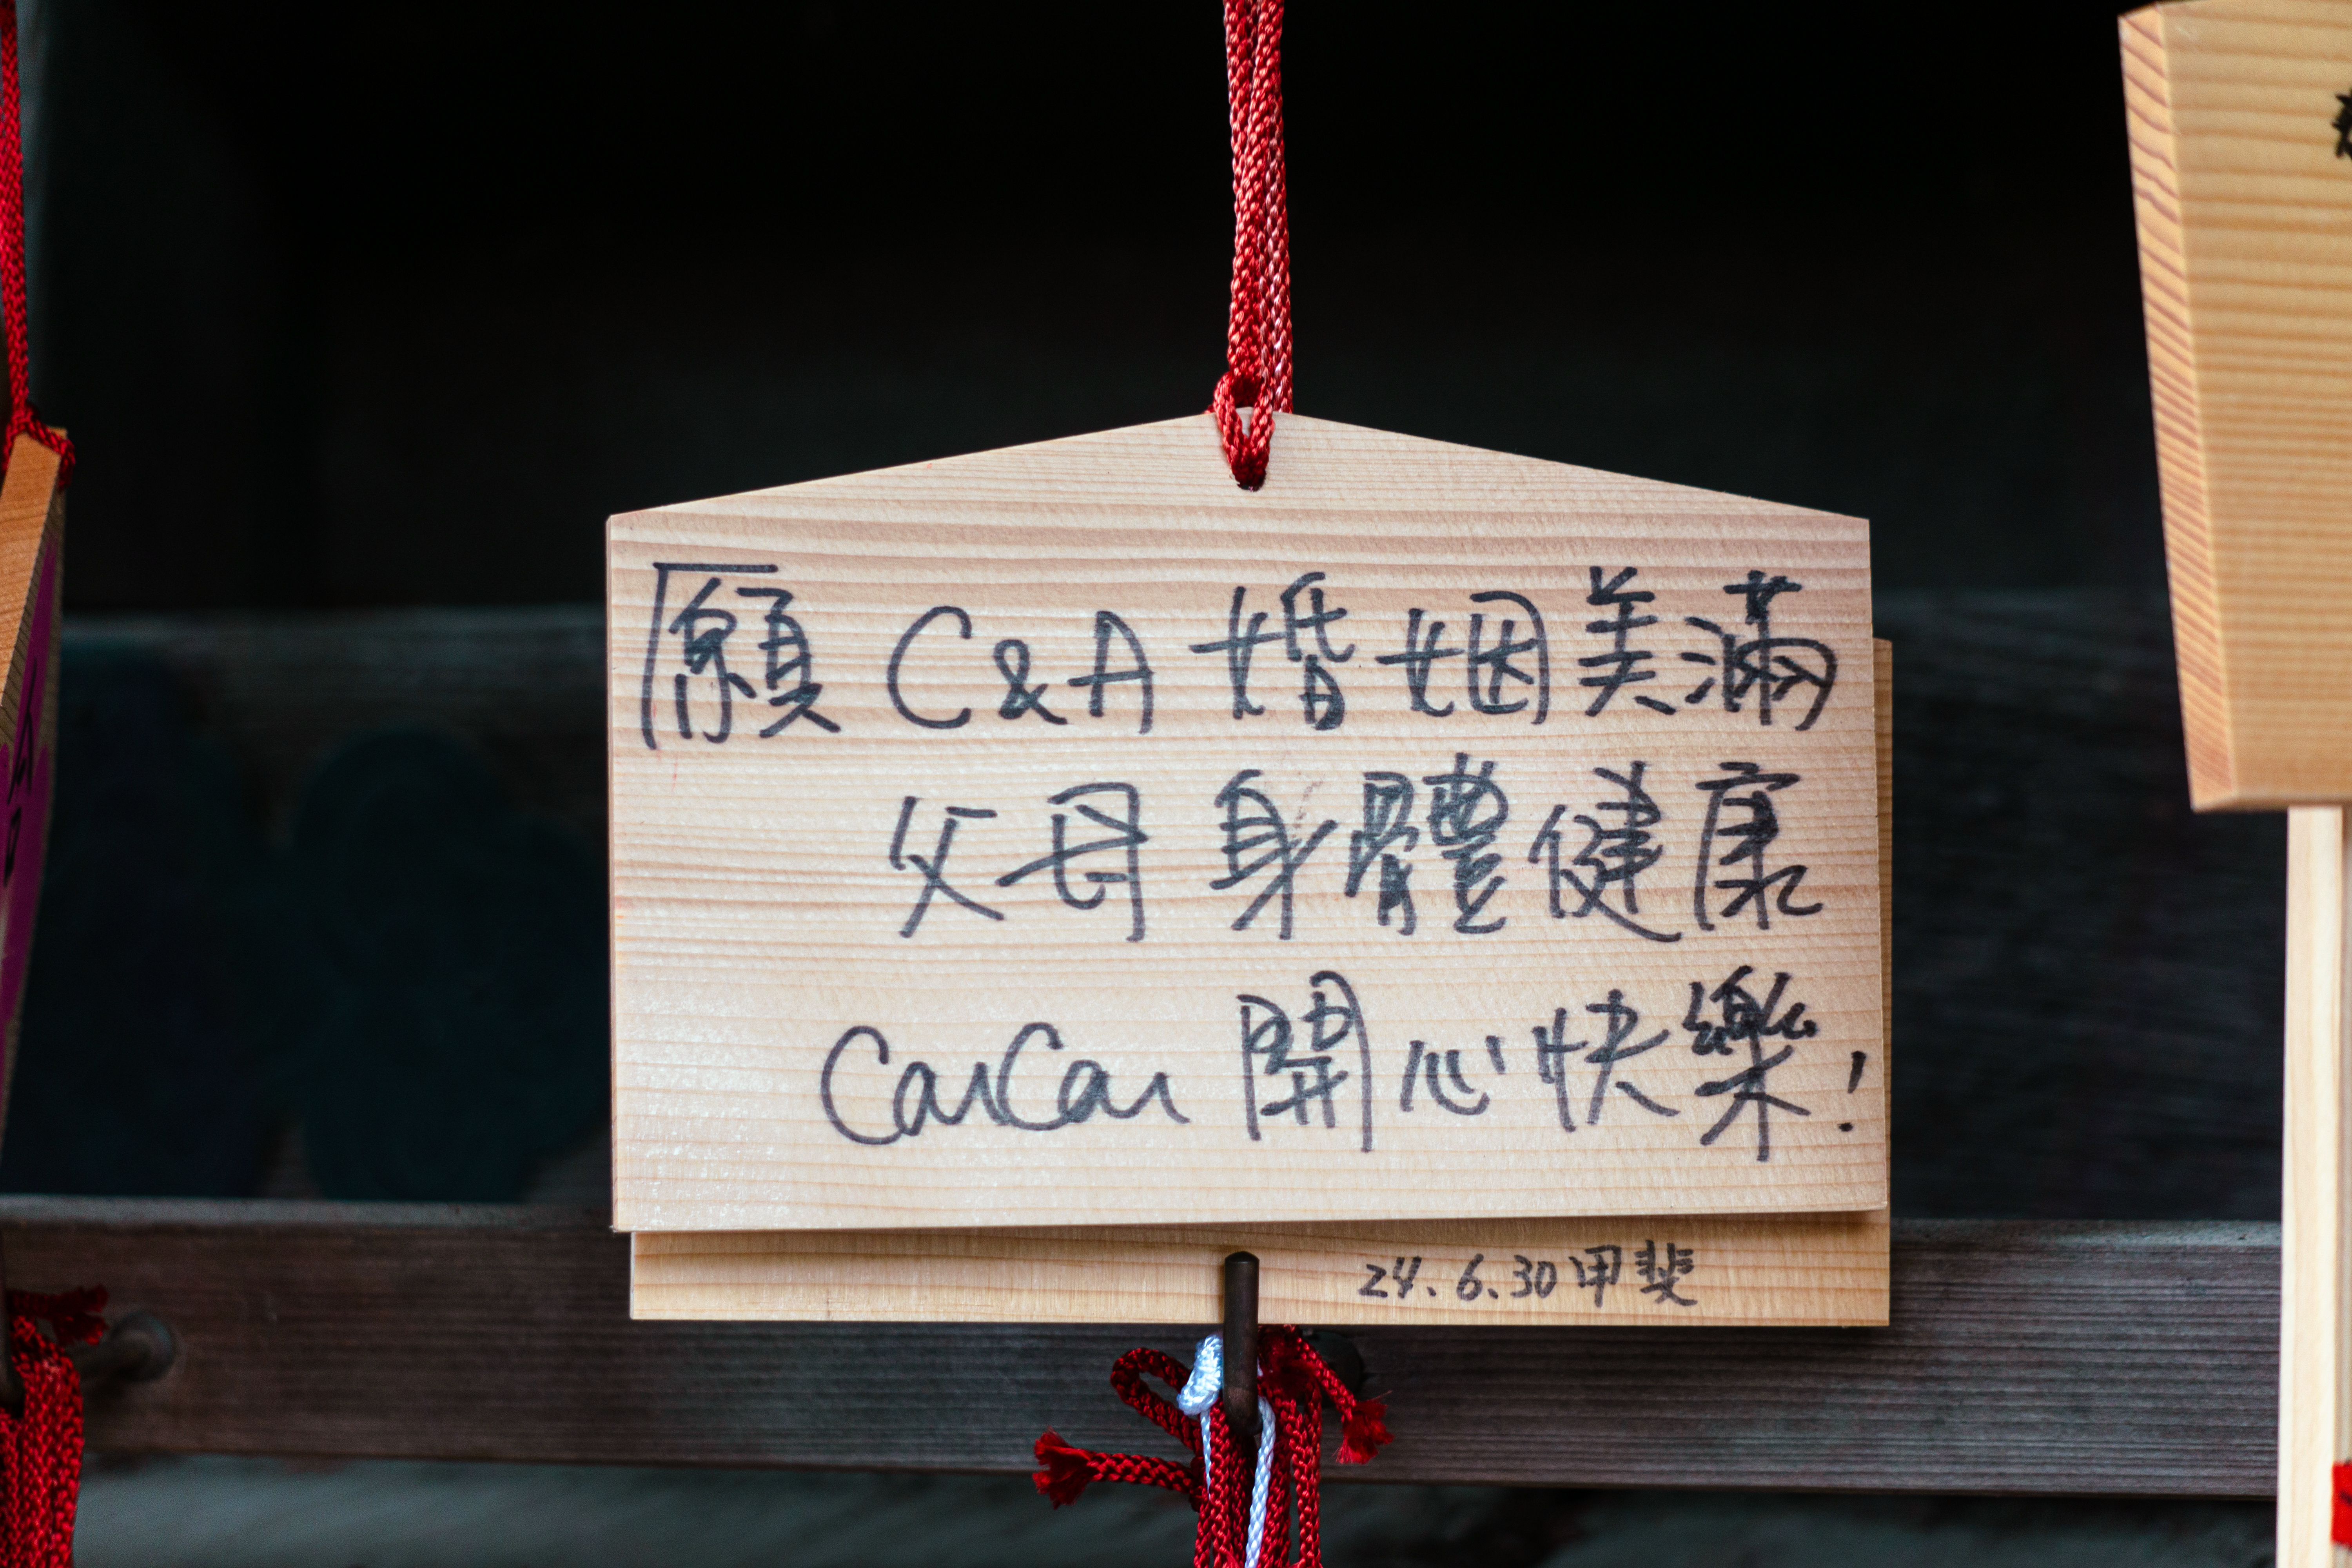 願 C&A 婚姻美滿
父母 身體健康
CaiCai 開心快樂!
24.6.30 甲斐